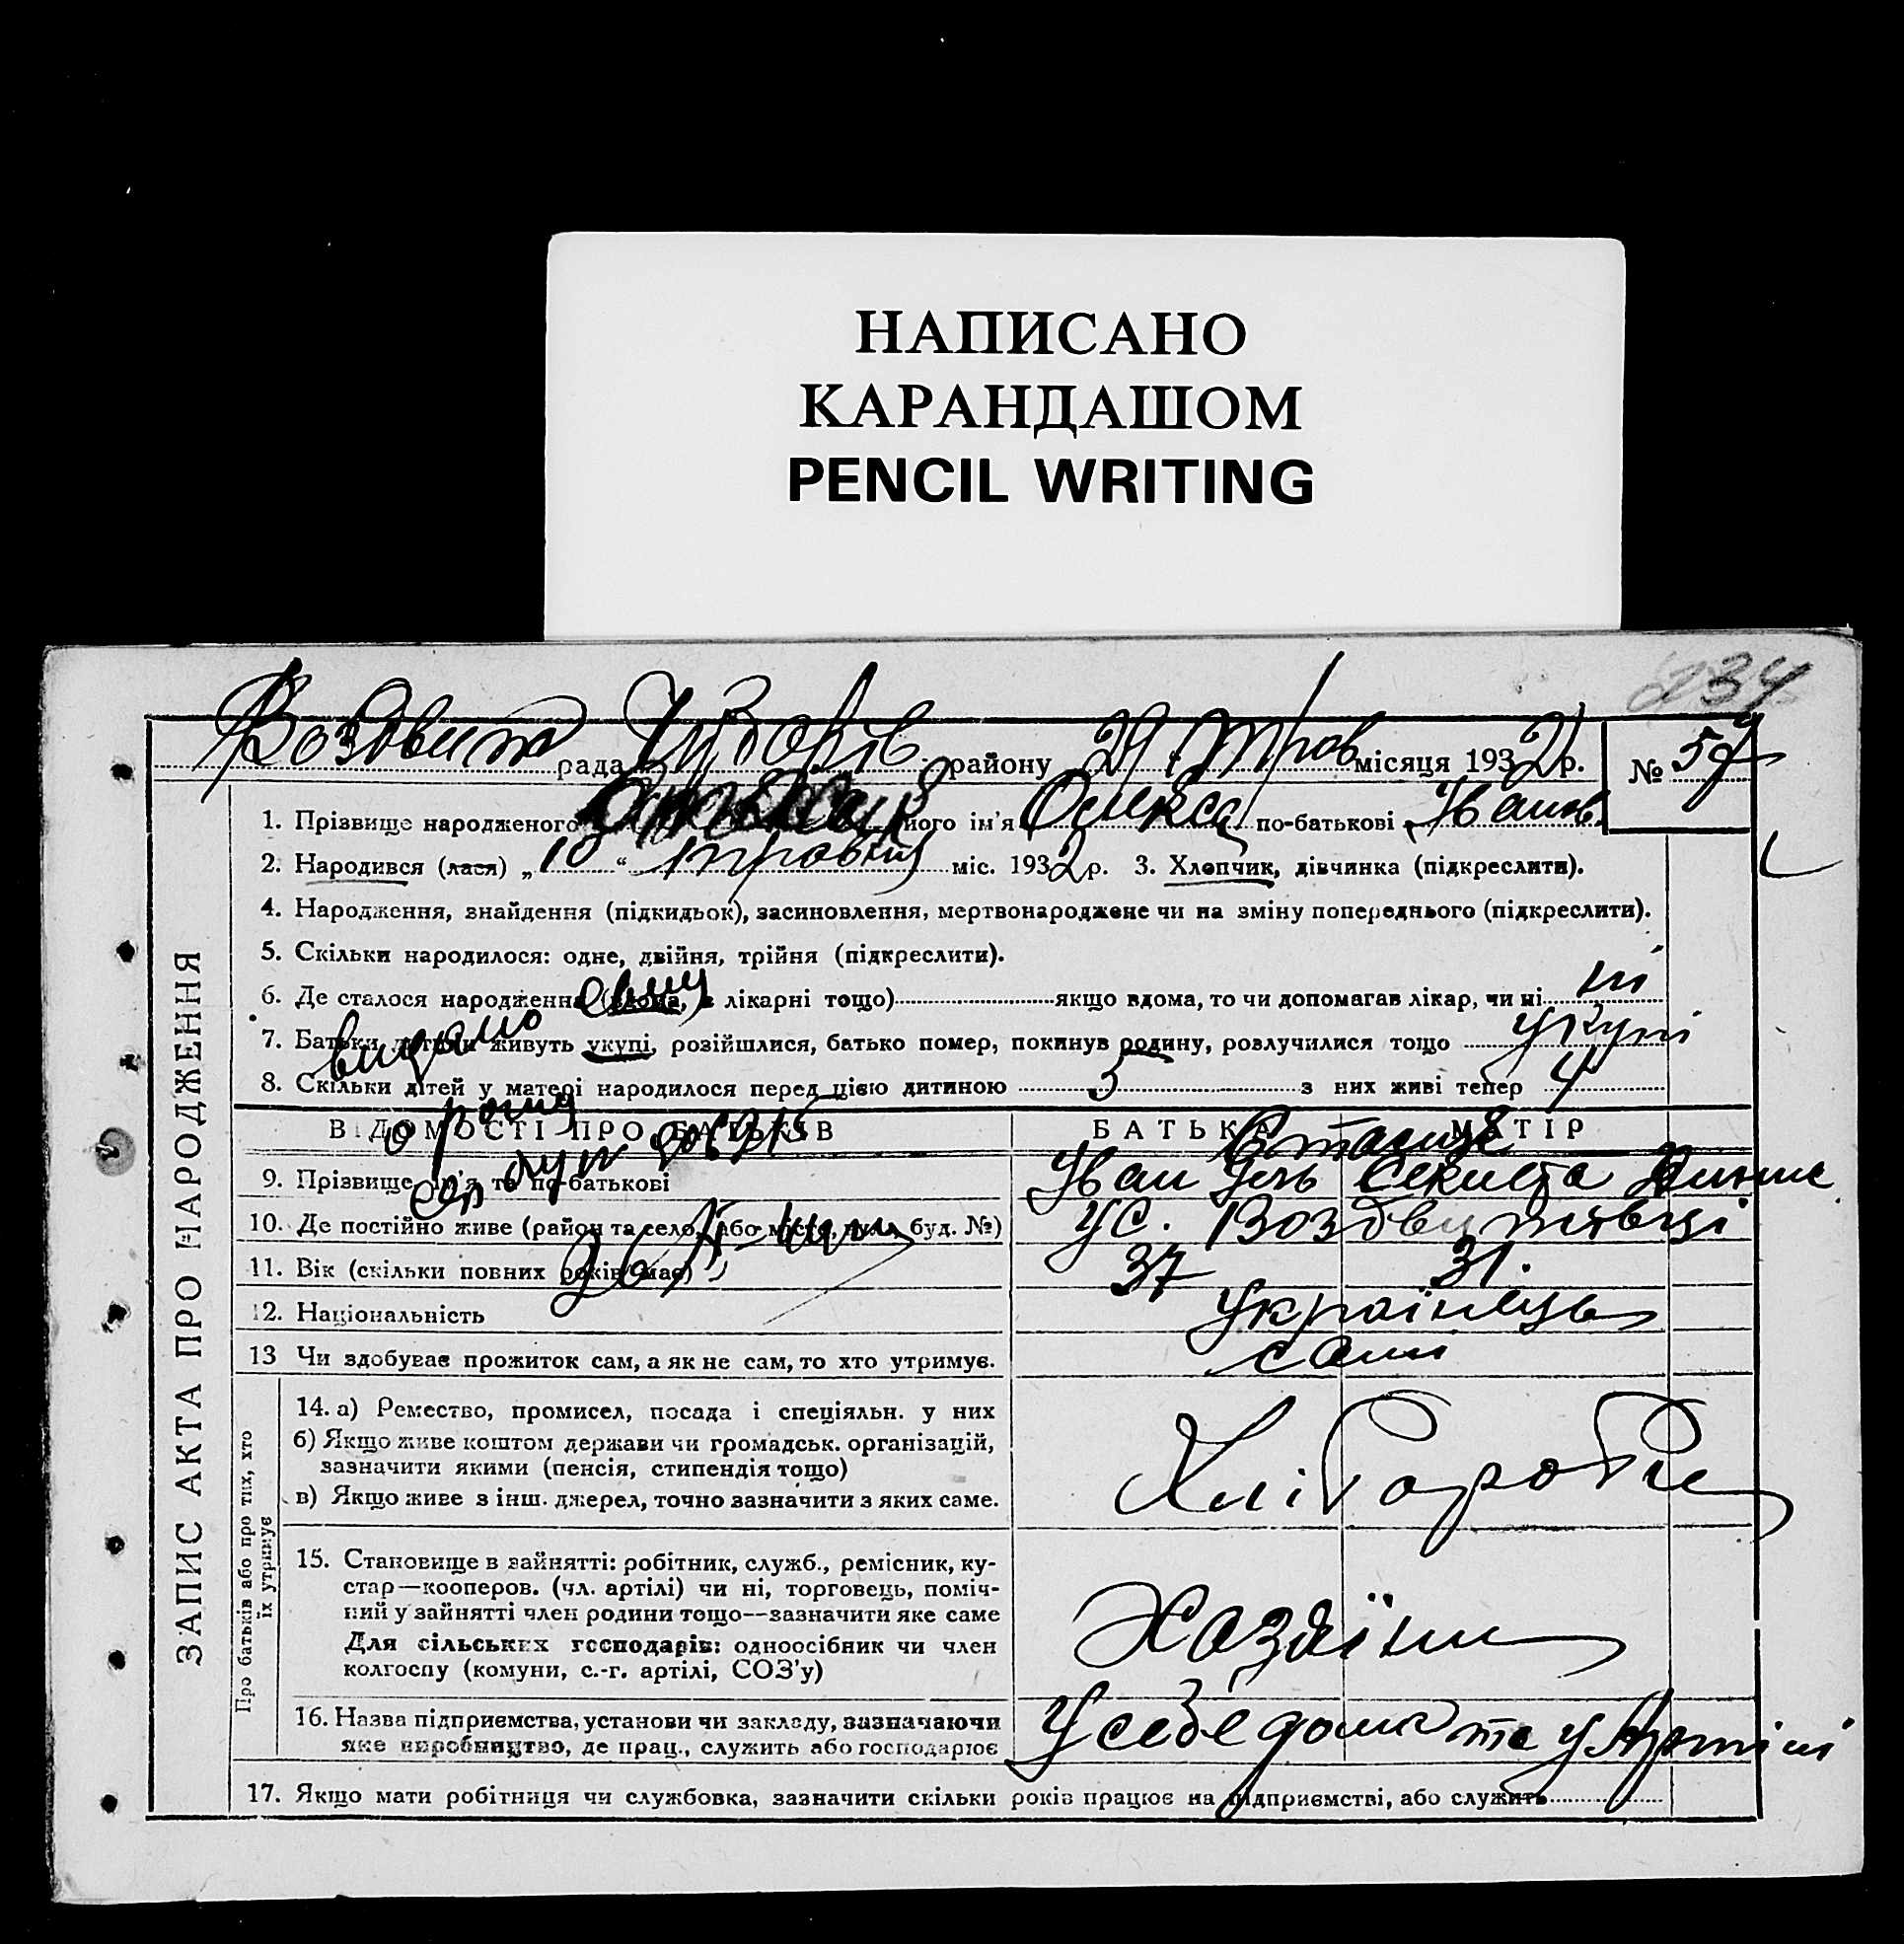 НАПИСАНО
КАРАНДАШОМ
PENCIL WRITING
234
рада району 29 трав місяця 1932 р. № 57
1. Прізвище народженого ного ім'я Олекса по-батькові Іванов.
2. Народився (лася) „10“ травня міс. 1932 р. 3. Хлопчик, дівчинка (підкреслити).
4. Народження, знайдення (підкидьок), засиновлення, мертвонароджене чи на зміну попереднього (підкреслити).
5. Скільки народилося: одне, двійня, трійня (підкреслити).
6. Де сталося народження (вдома, в лікарні тощо) якщо вдома, то чи допомагав лікар, чи ні ні
7. Батьки дитини живуть укупі, розійшлися, батько помер, покинув родину, розлучилися тощо укупі
8. Скільки дітей у матері народилося перед цією дитиною 5 з них живі тепер 4
видано
ВІДОМОСТІ ПРО БАТЬКІВ БАТЬКА МАТІР
9. Прізвище, ім'я та по-батькові Іван
10. Де постійно живе (район та село, або місто, вули. буд. №) у С.
11. Вік (скільки повних років має) 37 31.
12. Національність Українець
13 Чи здобуває прожиток сам, а як не сам, то хто утримує. сами
ЗАПИС АКТА ПРО НАРОДЖЕННЯ
Про батьків або про тих, хто їх утримує
14. а) Ремество, промисел, посада і спеціяльн. у них
б) Якщо живе коштом держави чи громадськ. організацій,
зазначити якими (пенсія, стипендія тощо)
в) Якщо живе з інш. джерел, точно зазначити з яких саме.
Хлібороби
15. Становище в зайнятті: робітник, служб., ремісник, ку-
стар—кооперов. (чл. артілі) чи ні, торговець, поміч-
ний у зайнятті член родини тощо—зазначити яке саме
Для сільських господарів: одноосібник чи член
колгоспу (комуни, с.-г. артілі, СОЗ'у)
Хазяїни
16. Назва підприємства, установи чи закладу, зазначаючи
яке виробництво, де прац., служить або господарює
У себе дома та у Артілі
17. Якщо мати робітниця чи службовка, зазначити скільки років працює на підприємстві, або служить